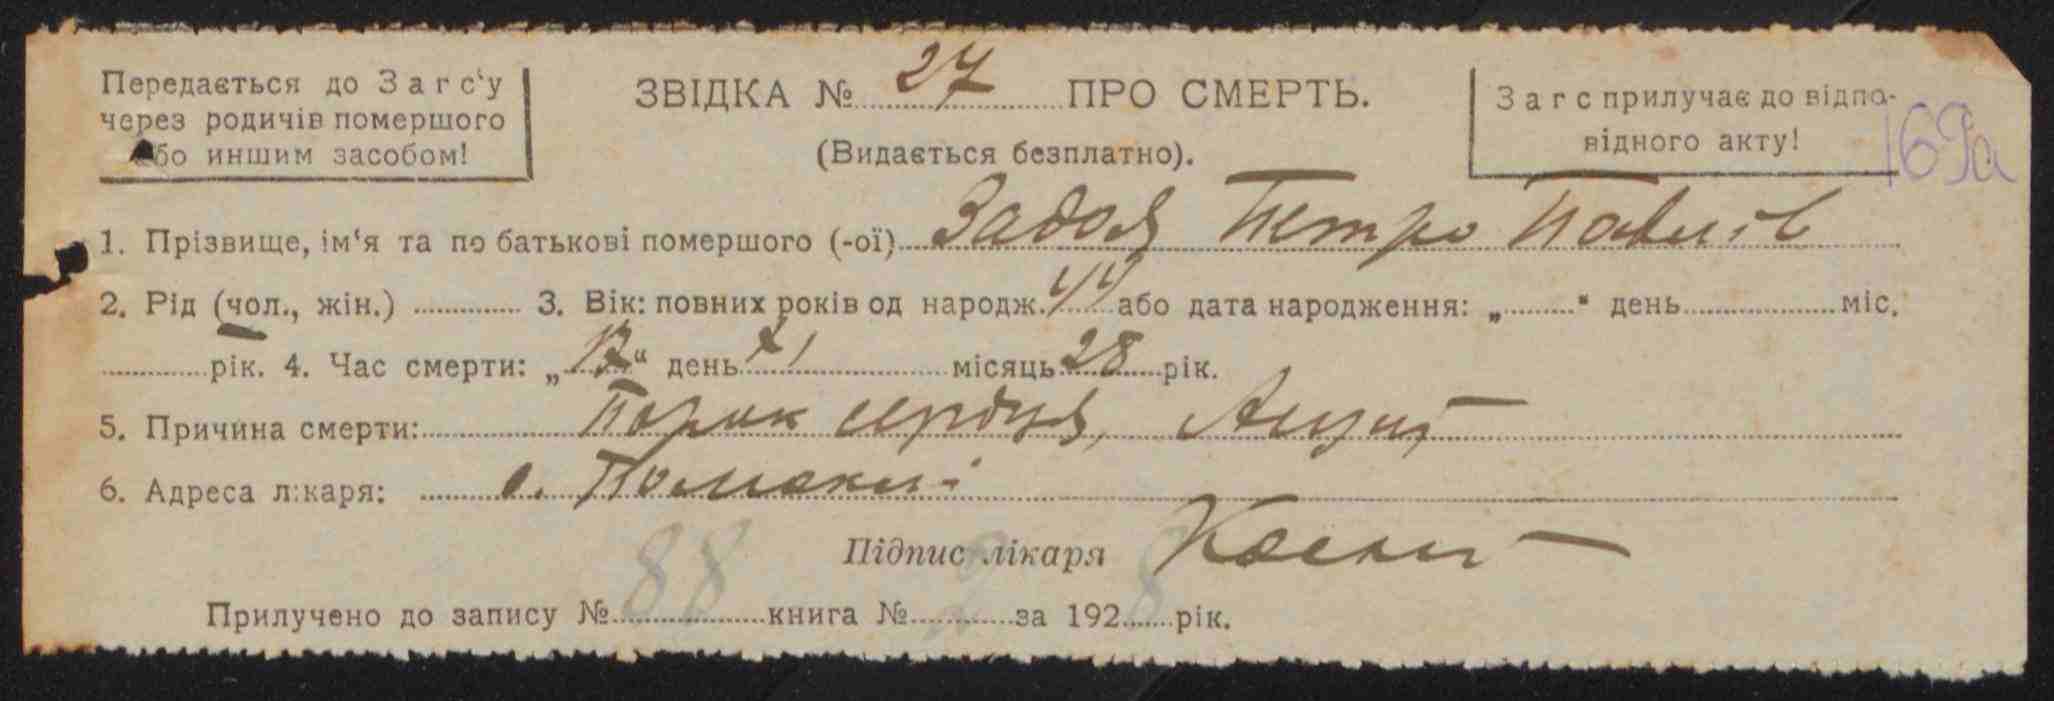 Передається до Загс'у
через родичів помершого
або иншим засобом!
ЗВІДКА № 27 ПРО СМЕРТЬ.
(Видається безплатно).
Загс прилучає до відпо-
відного акту!
169а
1. Прізвище, ім'я та по батькові помершого (-ої) Задоя Петро Павлів
2. Рід (чол., жін.) 3. Вік: повних років од народж. 44 або дата народження: „ " день міс.
рік. 4. Час смерти: „ " день XI місяць 28 рік.
5. Причина смерти: Порок сердця, Асцит
6. Адреса лікаря: с.
Підпис лікаря
Прилучено до запису № 88 книга № 2 за 1928 рік.